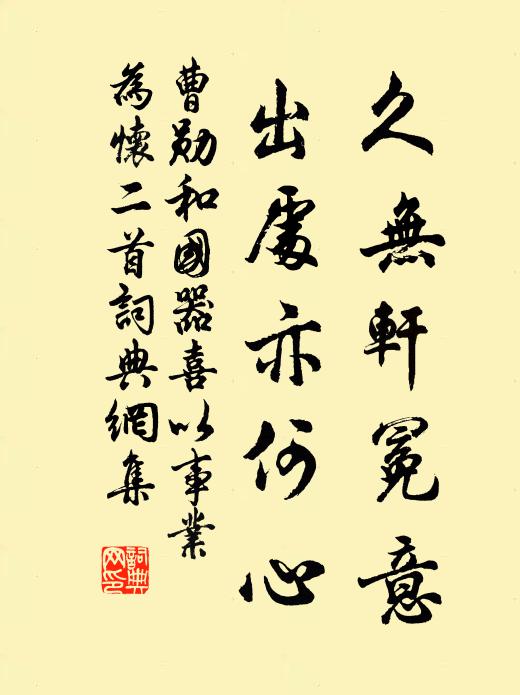 久無軒冕意
出處亦何心
曹勛和國器喜以事業
為懷二首詞典網集
詞典
网印